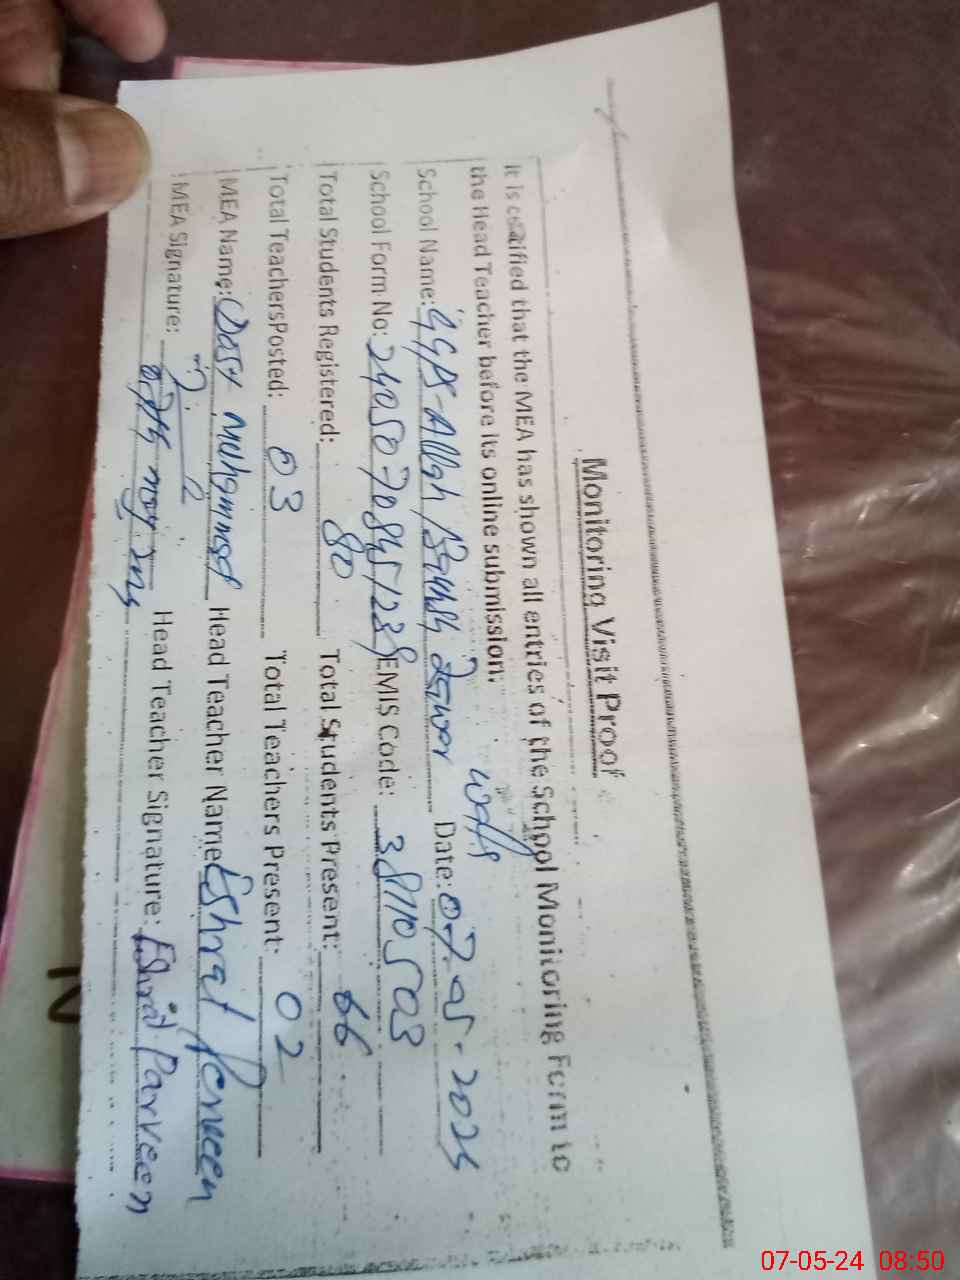 Monitoring Visit Proof
It is certified that the MEA has shown all entries of the School Monitoring Form to
the Head Teacher before its online submission.
School Name: GGPS-Allah Date: 07-05-2024
School Form No: EMIS Code: 38110503
Total Students Registered: 80 Total Students Present: 66
Total TeachersPosted: 03 Total Teachers Present: 02
MEA Name: Dost Muhammad Head Teacher Name: Eshrat Perveen
MEA Signature: Head Teacher Signature: Eshrat Parveen
07-05-24 08:50